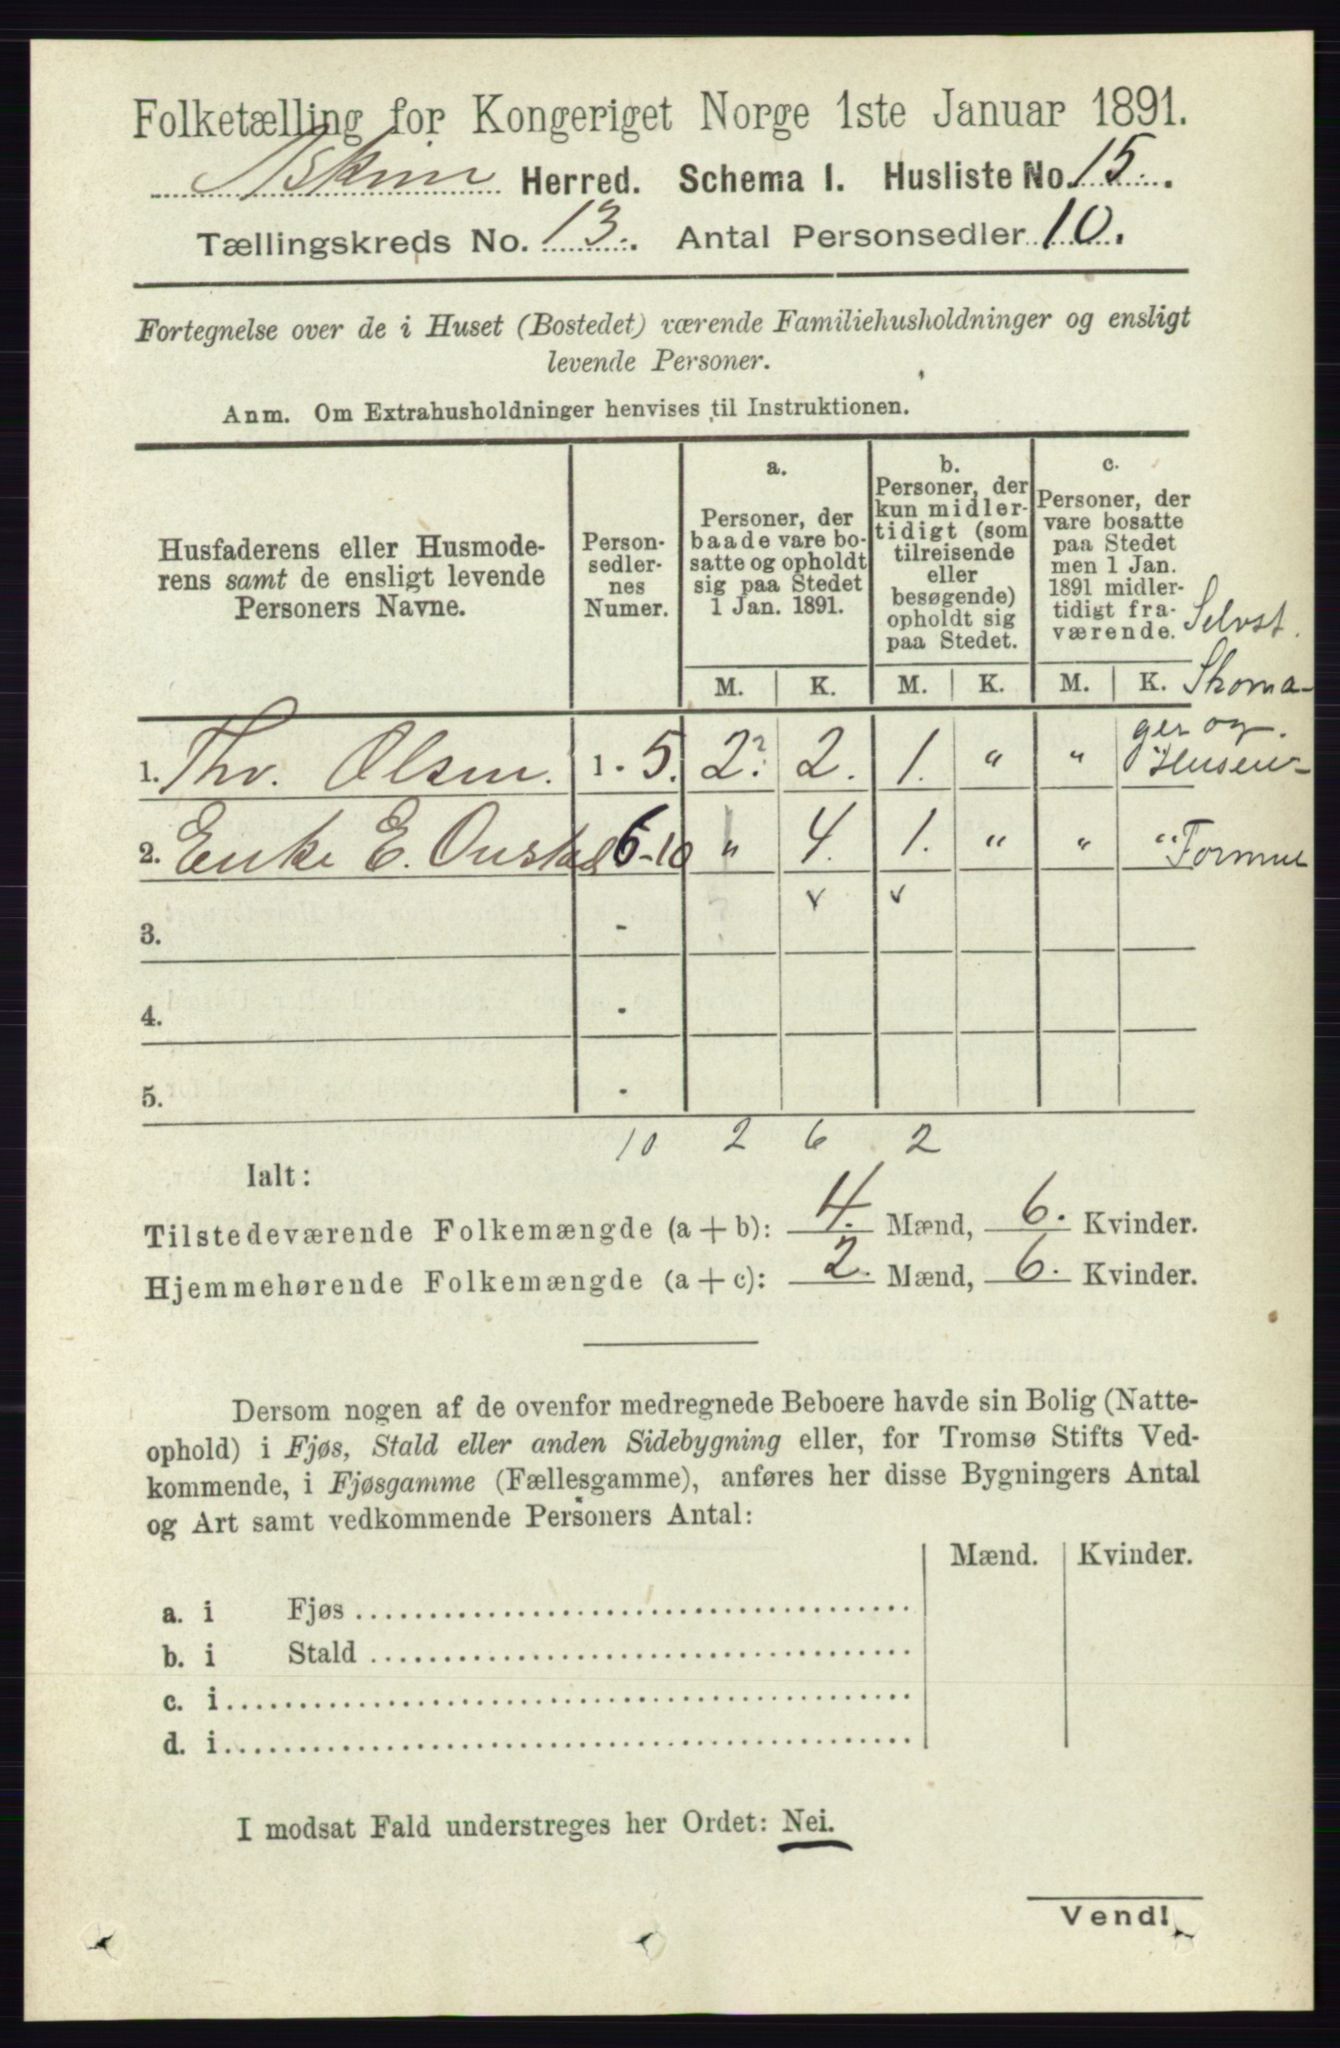 Folketælling for Kongeriget Norge 1ste Januar 1891.
Askim Herred. Schema I. Husliste No. 15.
Tællingskreds No. 13. Antal Personsedler 10.
Fortegnelse over de i Huset (Bostedet) værende Familiehusholdninger og ensligt
levende Personer.
Anm. Om Extrahusholdninger henvises til Instruktionen.
Husfaderens eller Husmode-
rens samt de ensligt levende
Personers Navne.
Person-
sedler-
nes
Numer.
a.
Personer, der
baade vare bo-
satte og opholdt
sig paa Stedet
1 Jan. 1891.
b.
Personer, der
kun midler-
tidigt (som
tilreisende
eller
besøgende)
opholdt sig
paa Stedet.
c.
Personer, der
vare bosatte
paa Stedet
men 1 Jan.
1891 midler-
tidigt fra-
værende.
M. K. M. K. M. K.
Selvst.
Skoma-
ger og
Huseier
1. Thv. Olsen. 1 - 5. 2. 2. 1. " " "
2. Enke E. 6-10 " 4. 1. " " " Formue
3. -
4. -
5. -
10 2 6 2
Ialt:
Tilstedeværende Folkemængde (a + b): 4. Mænd, 6. Kvinder.
Hjemmehørende Folkemængde (a + c): 2. Mænd, 6. Kvinder.
Dersom nogen af de ovenfor medregnede Beboere havde sin Bolig (Natte-
ophold) i Fjøs, Stald eller anden Sidebygning eller, for Tromsø Stifts Ved-
kommende, i Fjøsgamme (Fællesgamme), anføres her disse Bygningers Antal
og Art samt vedkommende Personers Antal:
Mænd. Kvinder.
a. i Fjøs
b. i Stald
c. i
d. i
I modsat Fald understreges her Ordet: Nei.
Vend!